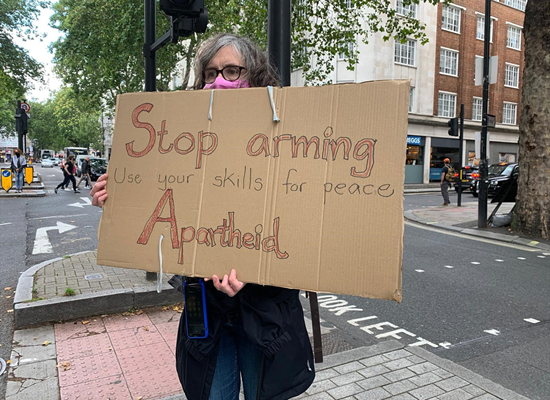 Stop arming
Use your skills for peace
Apartheid
LOOK LEFT